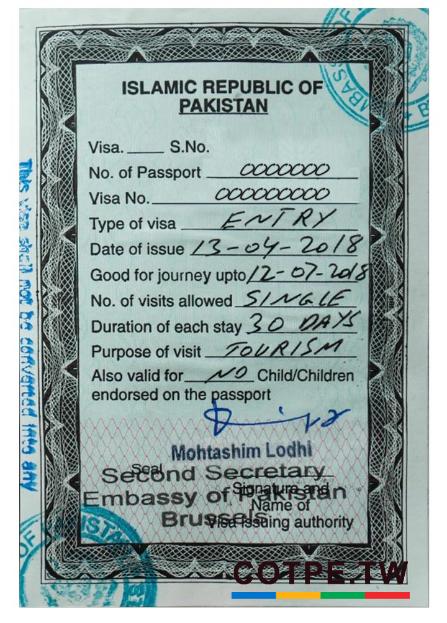 ISLAMIC REPUBLIC OF
PAKISTAN
Visa. ____ S.No.
No. of Passport 0000000
Visa No. 000000000
Type of visa ENTRY
Date of issue 13-04-2018
Good for journey upto 12-07-2018
No. of visits allowed SINGLE
Duration of each stay 30 DAYS
Purpose of visit TOURISM
Also valid for NO Child/Children
endorsed on the passport
Mohtashim Lodhi
Seal
Second Secretary
Signature and
Embassy of Pakistan
Name of
Brussels
Visa issuing authority
This visa shall not be converted into any
COTPE.TW